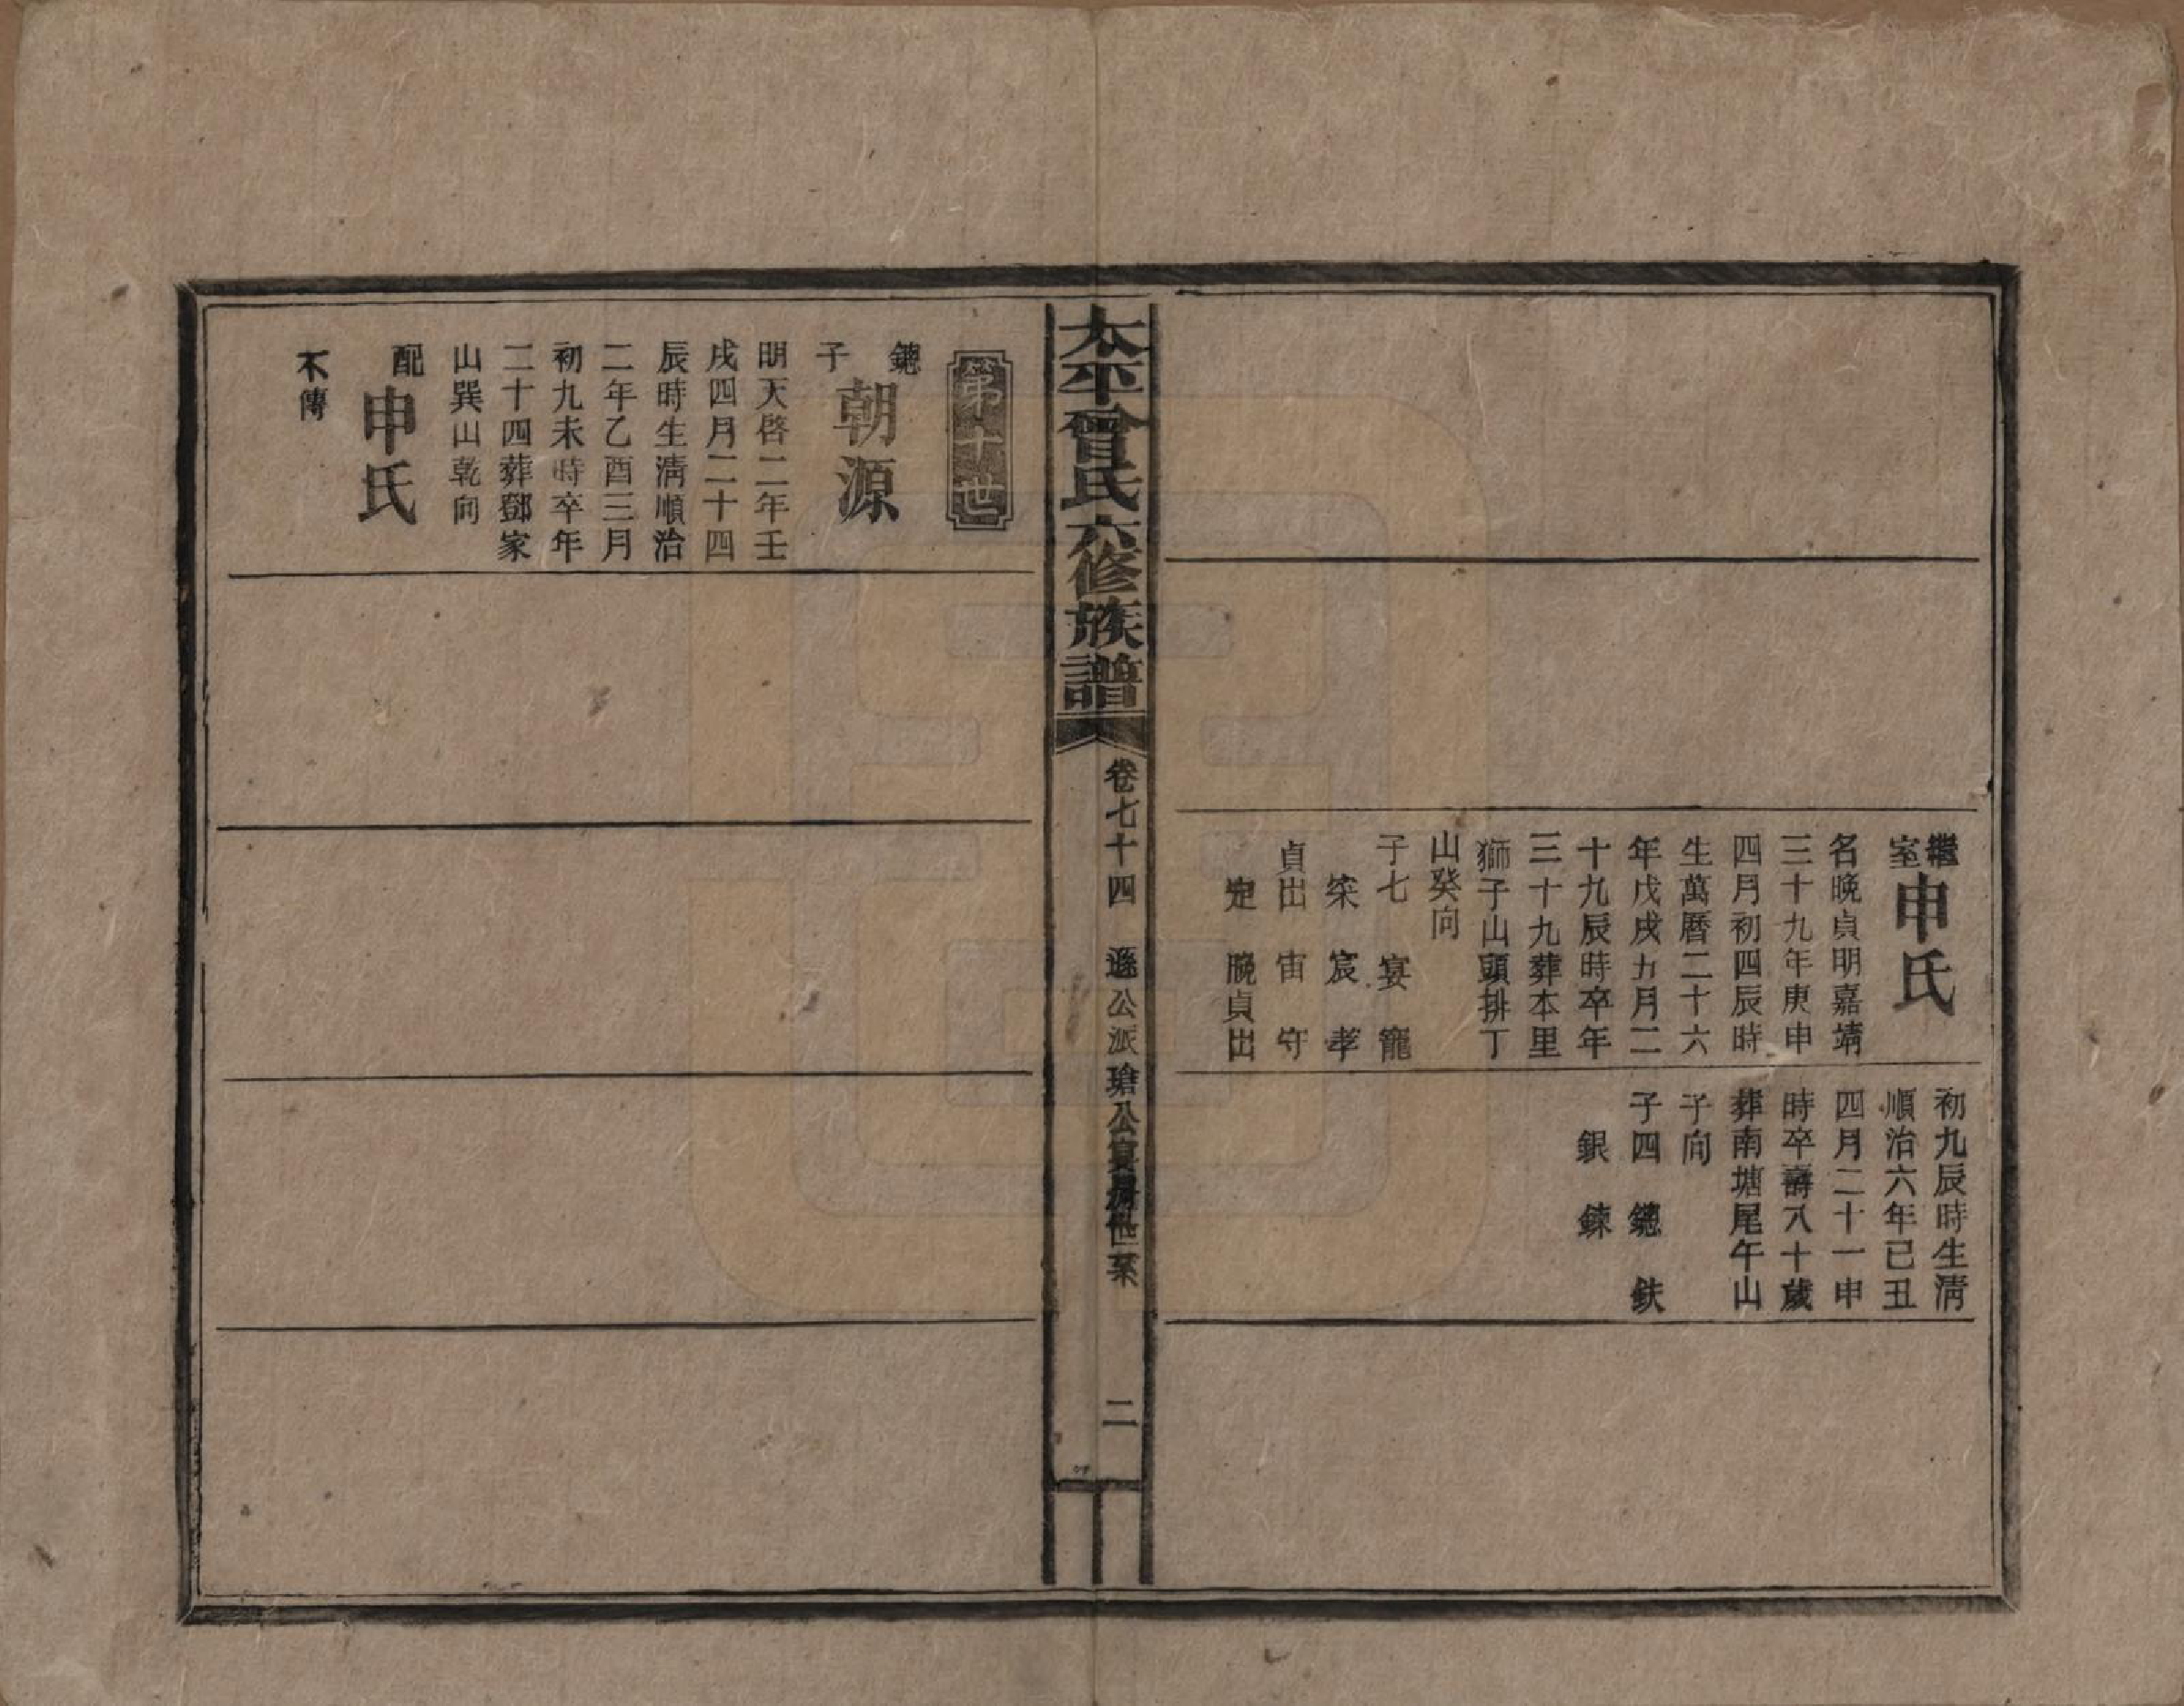 繼室申氏
名晚貞明嘉靖
三十九年庚申
四月初四辰時
生萬曆二十六
年戊戌五月二
十九辰時卒年
三十九葬本里
獅子山頭排丁
山癸向
子七 宴 寵
宷 宸 孝
貞出 宙 守
定 晚貞出
初九辰時生淸
順治六年己丑
四月二十一申
時卒壽八十歲
葬南塘尾午山
子向
子四 鏓 鈇
銀 鍊
太平曾氏六修族譜
卷七十四 遜公派瑲公房世系
二
第十世
鏓子朝源
明天啓二年壬
戌四月二十四
辰時生淸順治
二年乙酉三月
初九未時卒年
二十四葬鄧家
山巽山乾向
配申氏
不傳